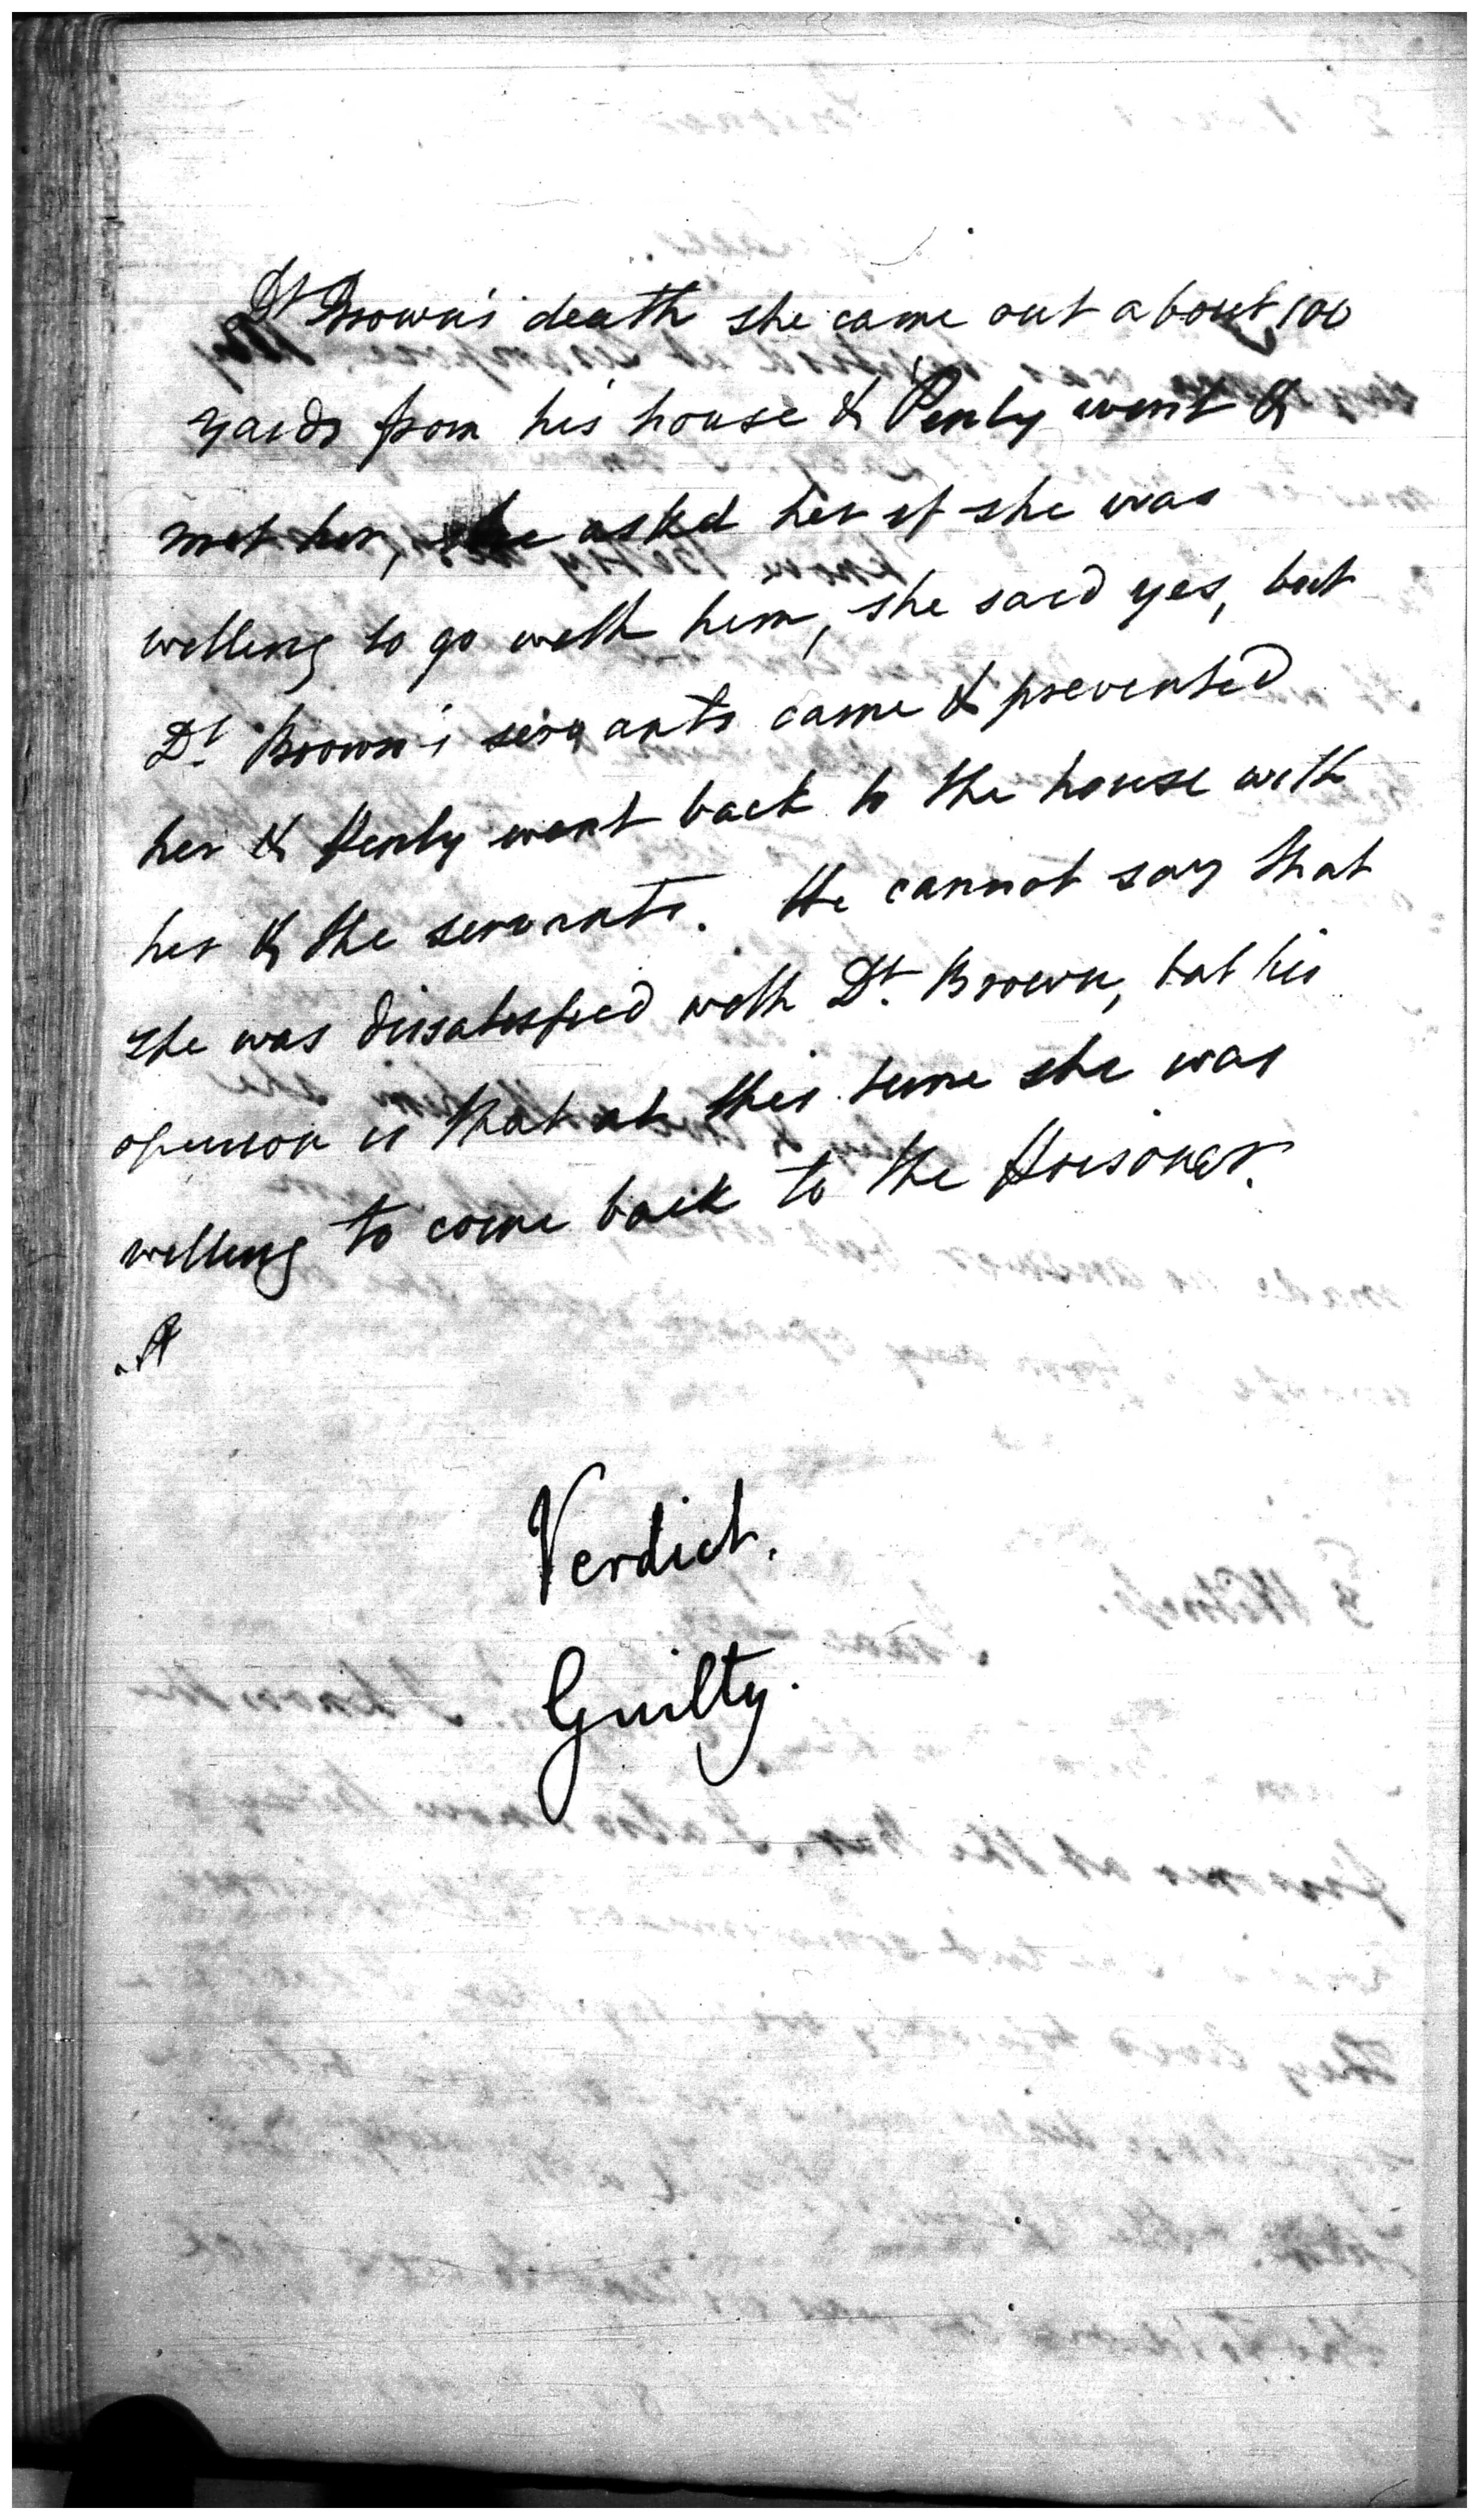 Dr Brown's death she came out about 100
yards from his house & Penly went &
met her, he asked her if she was
willing to go with him, she said yes, but
Dr. Brown's servants came & prevented
her & Penly went back to the house with
her & the servants. He cannot say that
she was dissatisfied with Dr. Brown, but his
opinion is that at this time she was
willing to come back to the Prisoner.
Verdict.
Guilty.